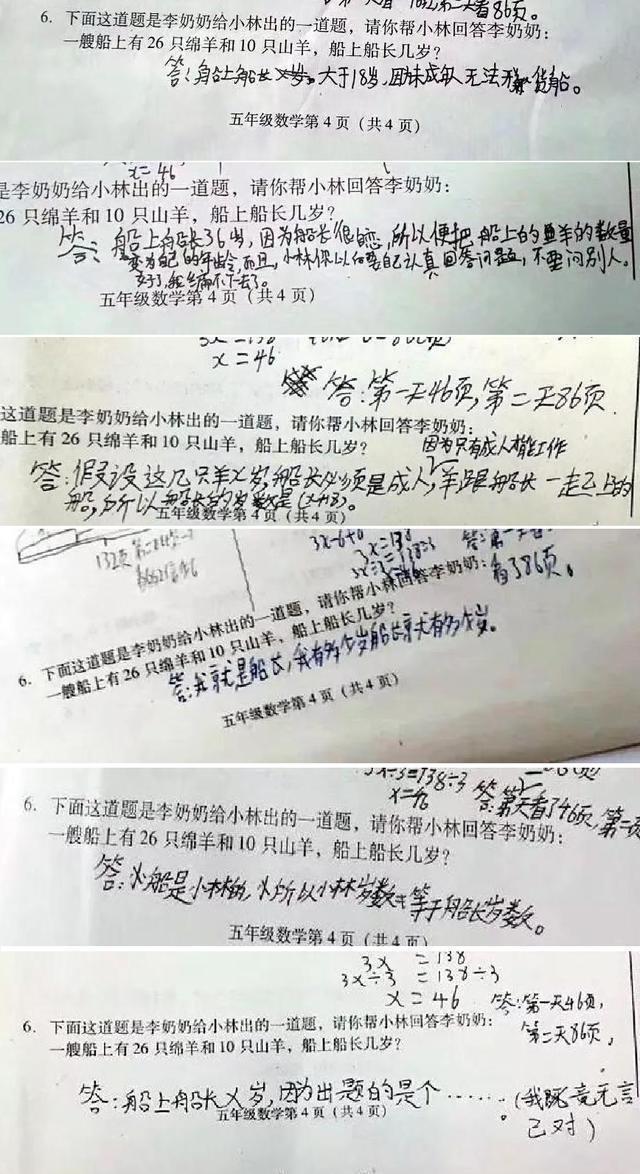 第二天看86页。
6. 下面这道题是李奶奶给小林出的一道题，请你帮小林回答李奶奶：
一艘船上有 26 只绵羊和 10 只山羊，船上船长几岁？
答：船上船长 大于18岁，因未成年人无法开货船。
五年级数学第 4 页（共 4 页）
x=46
是李奶奶给小林出的一道题，请你帮小林回答李奶奶：
26 只绵羊和 10 只山羊，船上船长几岁？
答：船上船长36岁，因为船长很恋，所以便把船上的羊的数量
变为自己的年龄，而且，小林你以后要自己认真回答问题，不要问别人。
好了，我编不下去了。
五年级数学第 4 页（共 4 页）
x=46
答：第一天46页，第二天86页.
这道题是李奶奶给小林出的一道题，请你帮小林回答李奶奶：
船上有 26 只绵羊和 10 只山羊，船上船长几岁？
因为只有成人才能工作
答：假设这几只羊x岁，船长必须是成人，羊跟船长一起上的
船，所以船长的岁数是(x+18)。
五年级数学第 4 页（共 4 页）
132页
3x=138
看了86页。
6. 下面这道题是李奶奶给小林出的一道题，请你帮小林回答李奶奶：
一艘船上有 26 只绵羊和 10 只山羊，船上船长几岁？
答：我就是船长，我有多少岁船长就有多少岁。
五年级数学第 4 页（共 4 页）
3x÷3=138÷3
x=46
答：第一天看了46页，第二
6. 下面这道题是李奶奶给小林出的一道题，请你帮小林回答李奶奶：
一艘船上有 26 只绵羊和 10 只山羊，船上船长几岁？
答：船是小林的，所以小林岁数等于船长岁数。
五年级数学第 4 页（共 4 页）
3x =138
3x÷3 =138÷3
x=46
答：第一天46页，
第二天86页。
6. 下面这道题是李奶奶给小林出的一道题，请你帮小林回答李奶奶：
一艘船上有 26 只绵羊和 10 只山羊，船上船长几岁？
答：船上船长x岁，因为出题的是个……。(我既竟无言
己对)
五年级数学第 4 页（共 4 页）